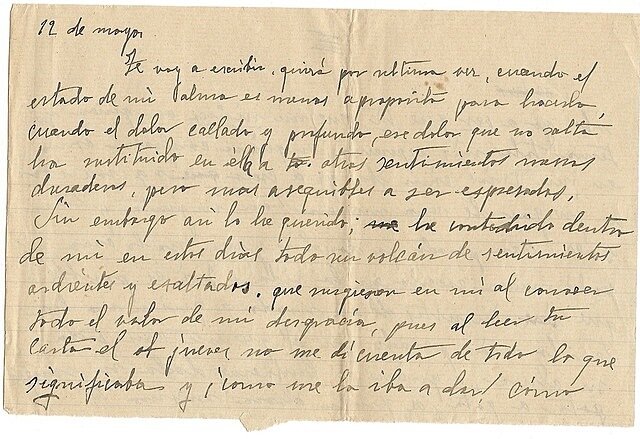 12 de mayo,
Te voy a escribir, quizá por ultima vez, cuando el
estado de mi alma es menos apropósito para hacerlo,
cuando el dolor callado y profundo, ese dolor que no salta
ha sustituido en ella a otros sentimientos menos
duraderos, pero mas asequibles a ser expresados.
Sin embargo asi lo he querido; me he contenido dentro
de mi en estos dias todo un volcán de sentimientos
ardientes y exaltados, que surgieron en mi al conocer
todo el valor de mi desgracia, pues al leer tu
carta el jueves no me di cuenta de todo lo que
significaba y ¡como me la iba a dar! cómo